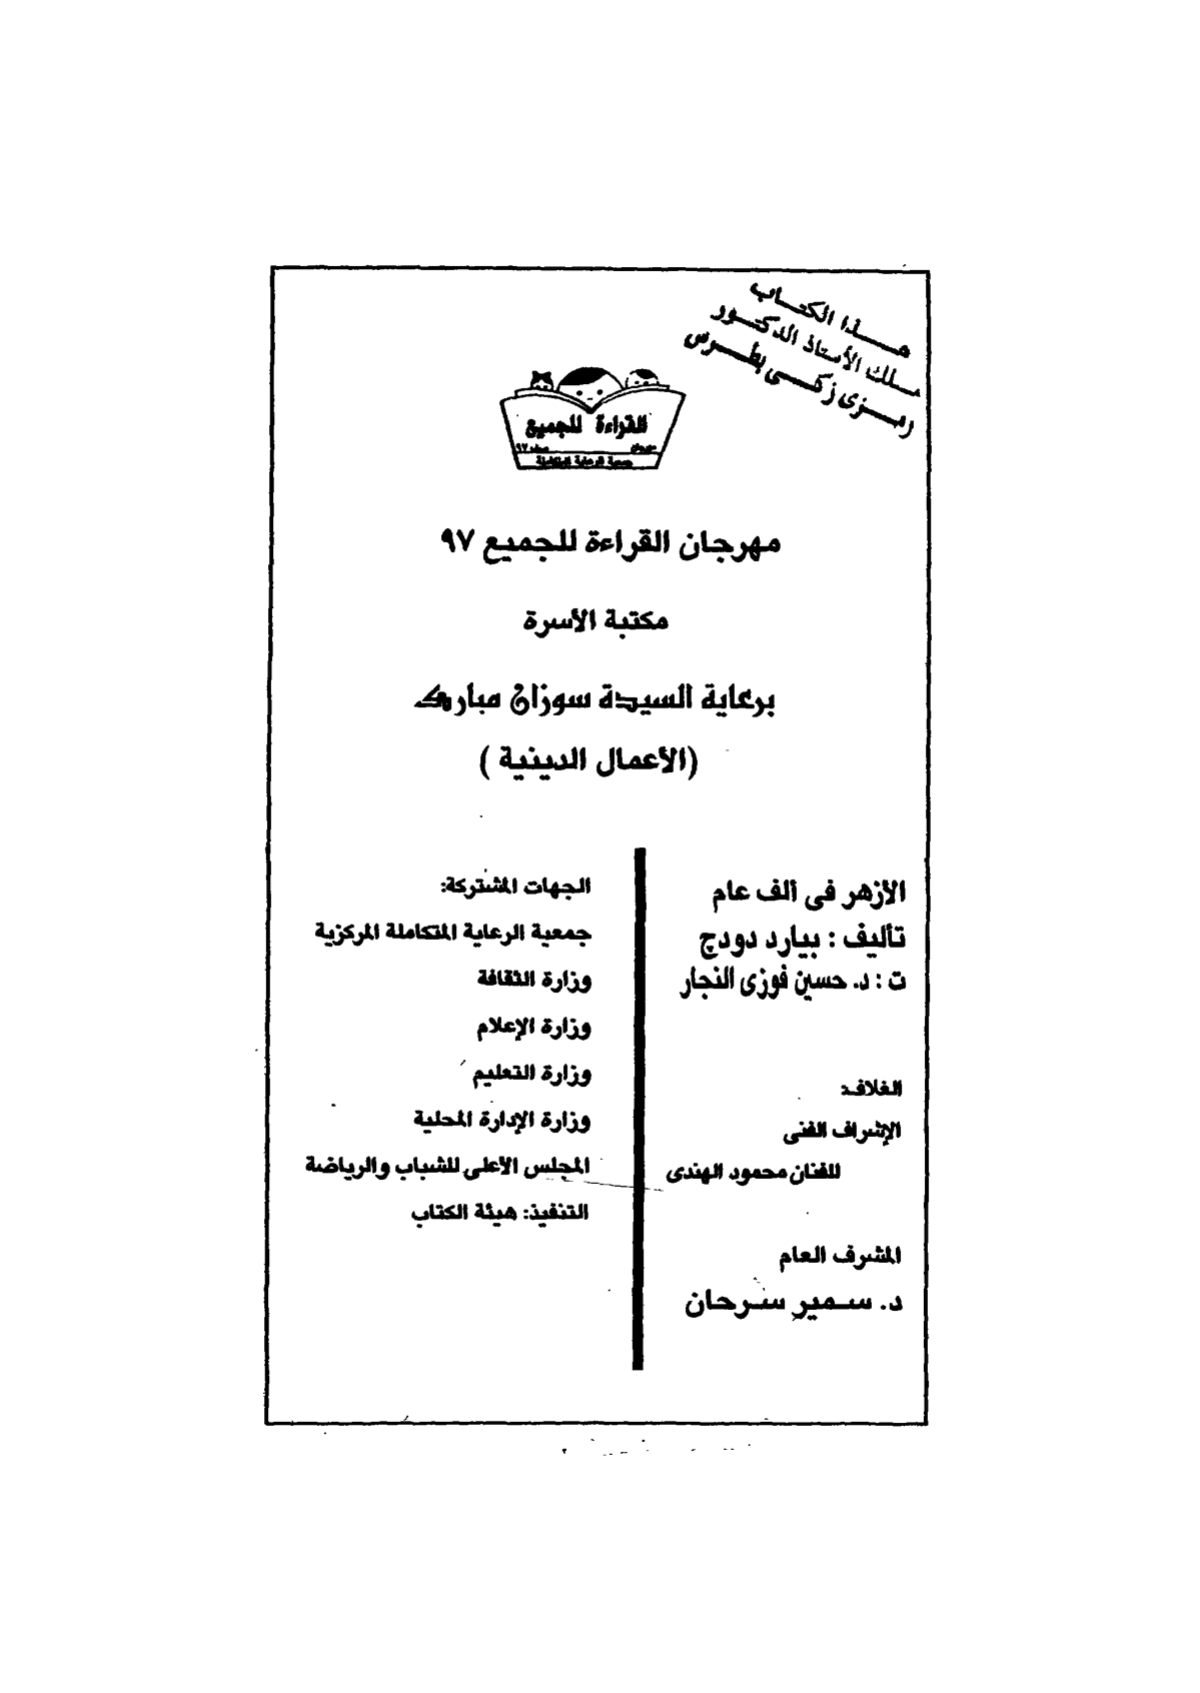 هذا الكتاب
ملك الأستاذ الدكتور
رمزى زكى بطرس
القراءة للجميع
جمعية الرعاية المتكاملة
مهرجان القراءة للجميع ٩٧
مكتبة الأسرة
برعاية السيدة سوزان مبارك
(الأعمال الدينية )
الأزهر فى ألف عام
تأليف : بيارد دودج
ت : د. حسين فوزى النجار
الغلاف:
الإشراف الفنى
للفنان محمود الهندى
المشرف العام
د. سمير سرحان
الجهات المشتركة:
جمعية الرعاية المتكاملة المركزية
وزارة الثقافة
وزارة الإعلام
وزارة التعليم
وزارة الإدارة المحلية
المجلس الأعلى للشباب والرياضة
التنفيذ: هيئة الكتاب